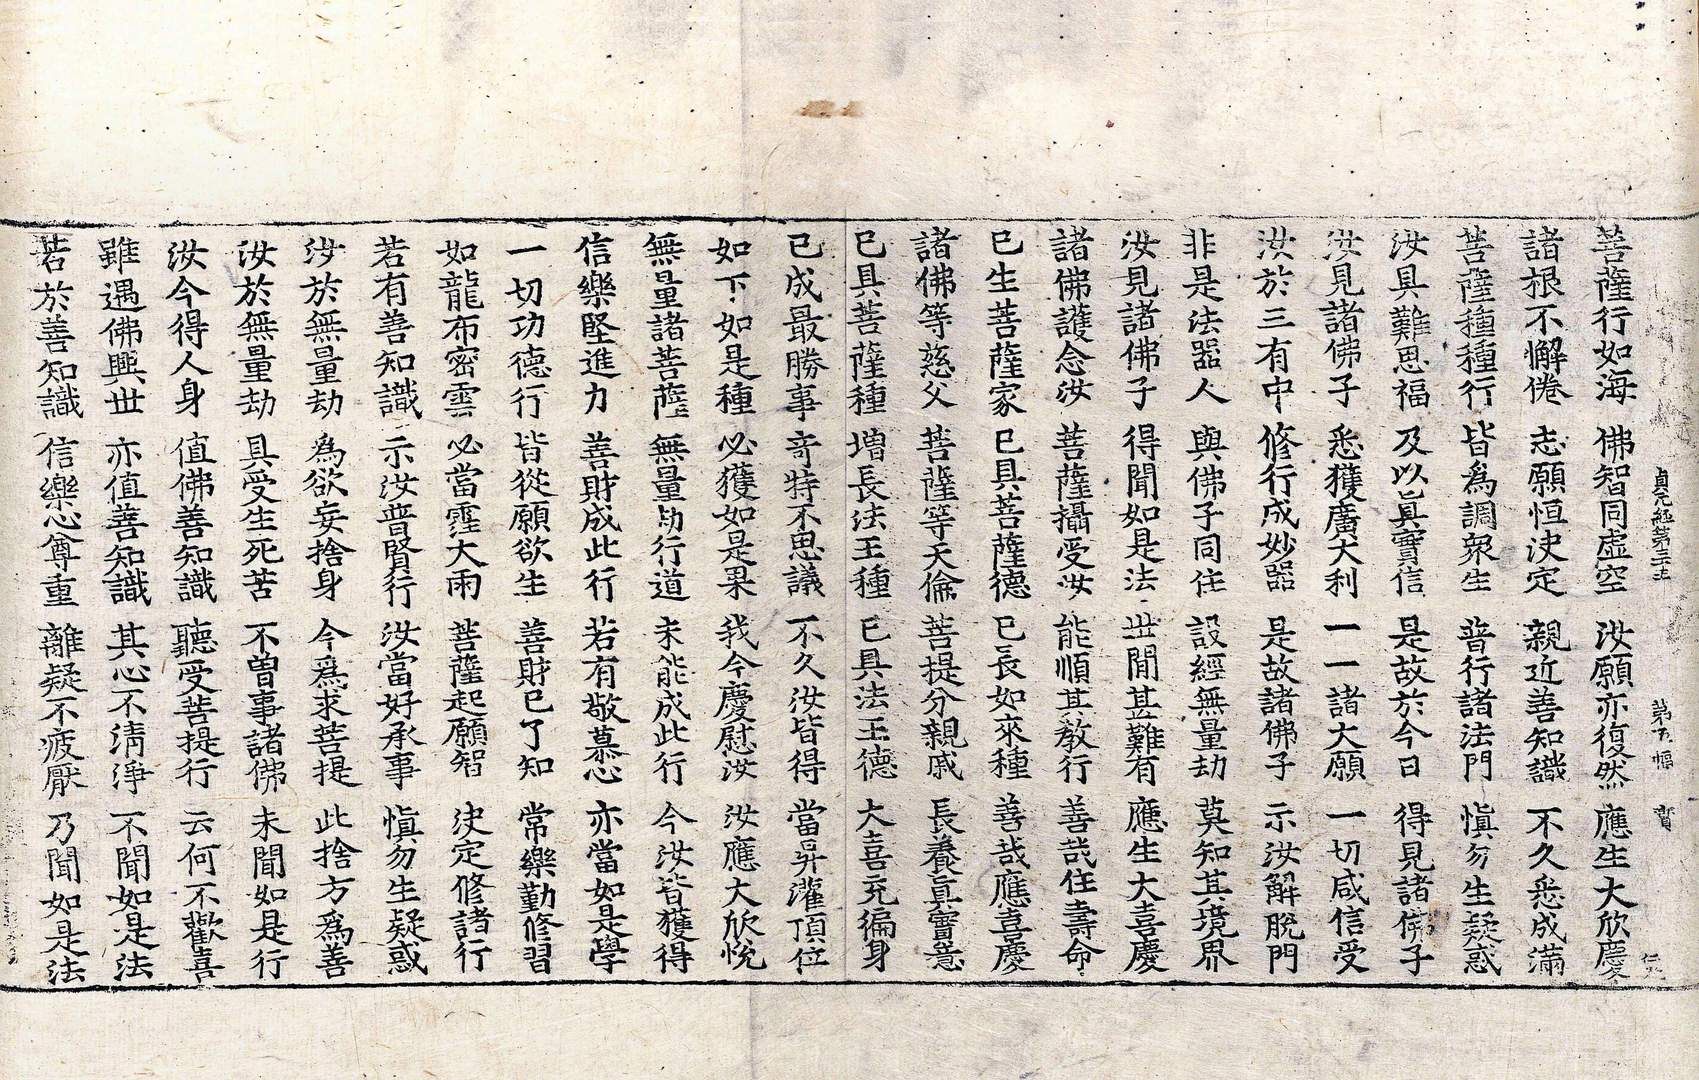 菩薩行如海 佛智同虛空 汝願亦復然 應生大欣慶
諸根不懈倦 志願恒決定 親近善知識 不久悉成滿
菩薩種種行 皆爲調衆生 普行諸法門 愼勿生疑惑
汝具難思福 及以眞實信 是故於今日 得見諸佛子
汝見諸佛子 悉獲廣大利 一一諸大願 一切咸信受
汝於三有中 修行成妙器 是故諸佛子 示汝解脫門
非是法器人 與佛子同住 設經無量劫 莫知其境界
汝見諸佛子 得聞如是法 世間甚難有 應生大喜慶
諸佛護念汝 菩薩攝受汝 能順其教行 善哉住壽命
已生菩薩家 已具菩薩德 已長如來種 善哉應喜慶
諸佛等慈父 菩薩等天倫 菩提分親戚 長養眞實意
已具菩薩種 增長法王種 已具法王德 大喜充徧身
已成最勝事 奇特不思議 不久汝皆得 當昇灌頂位
如下如是種 必獲如是果 我今慶慰汝 汝應大欣悅
無量諸菩薩 無量劫行道 未能成此行 今汝皆獲得
信樂堅進力 善財成此行 若有敬慕心 亦當如是學
一切功德行 皆從願欲生 善財已了知 常樂勤修習
如龍布密雲 必當霔大雨 菩薩起願智 決定修諸行
若有善知識 示汝普賢行 汝當好承事 愼勿生疑惑
汝於無量劫 爲欲妄捨身 今爲求菩提 此捨方爲善
汝於無量劫 具受生死苦 不曾事諸佛 未聞如是行
汝今得人身 值佛善知識 聽受菩提行 云何不歡喜
雖遇佛興世 亦值善知識 其心不淸淨 不聞如是法
若於善知識 信樂心尊重 離疑不疲厭 乃聞如是法